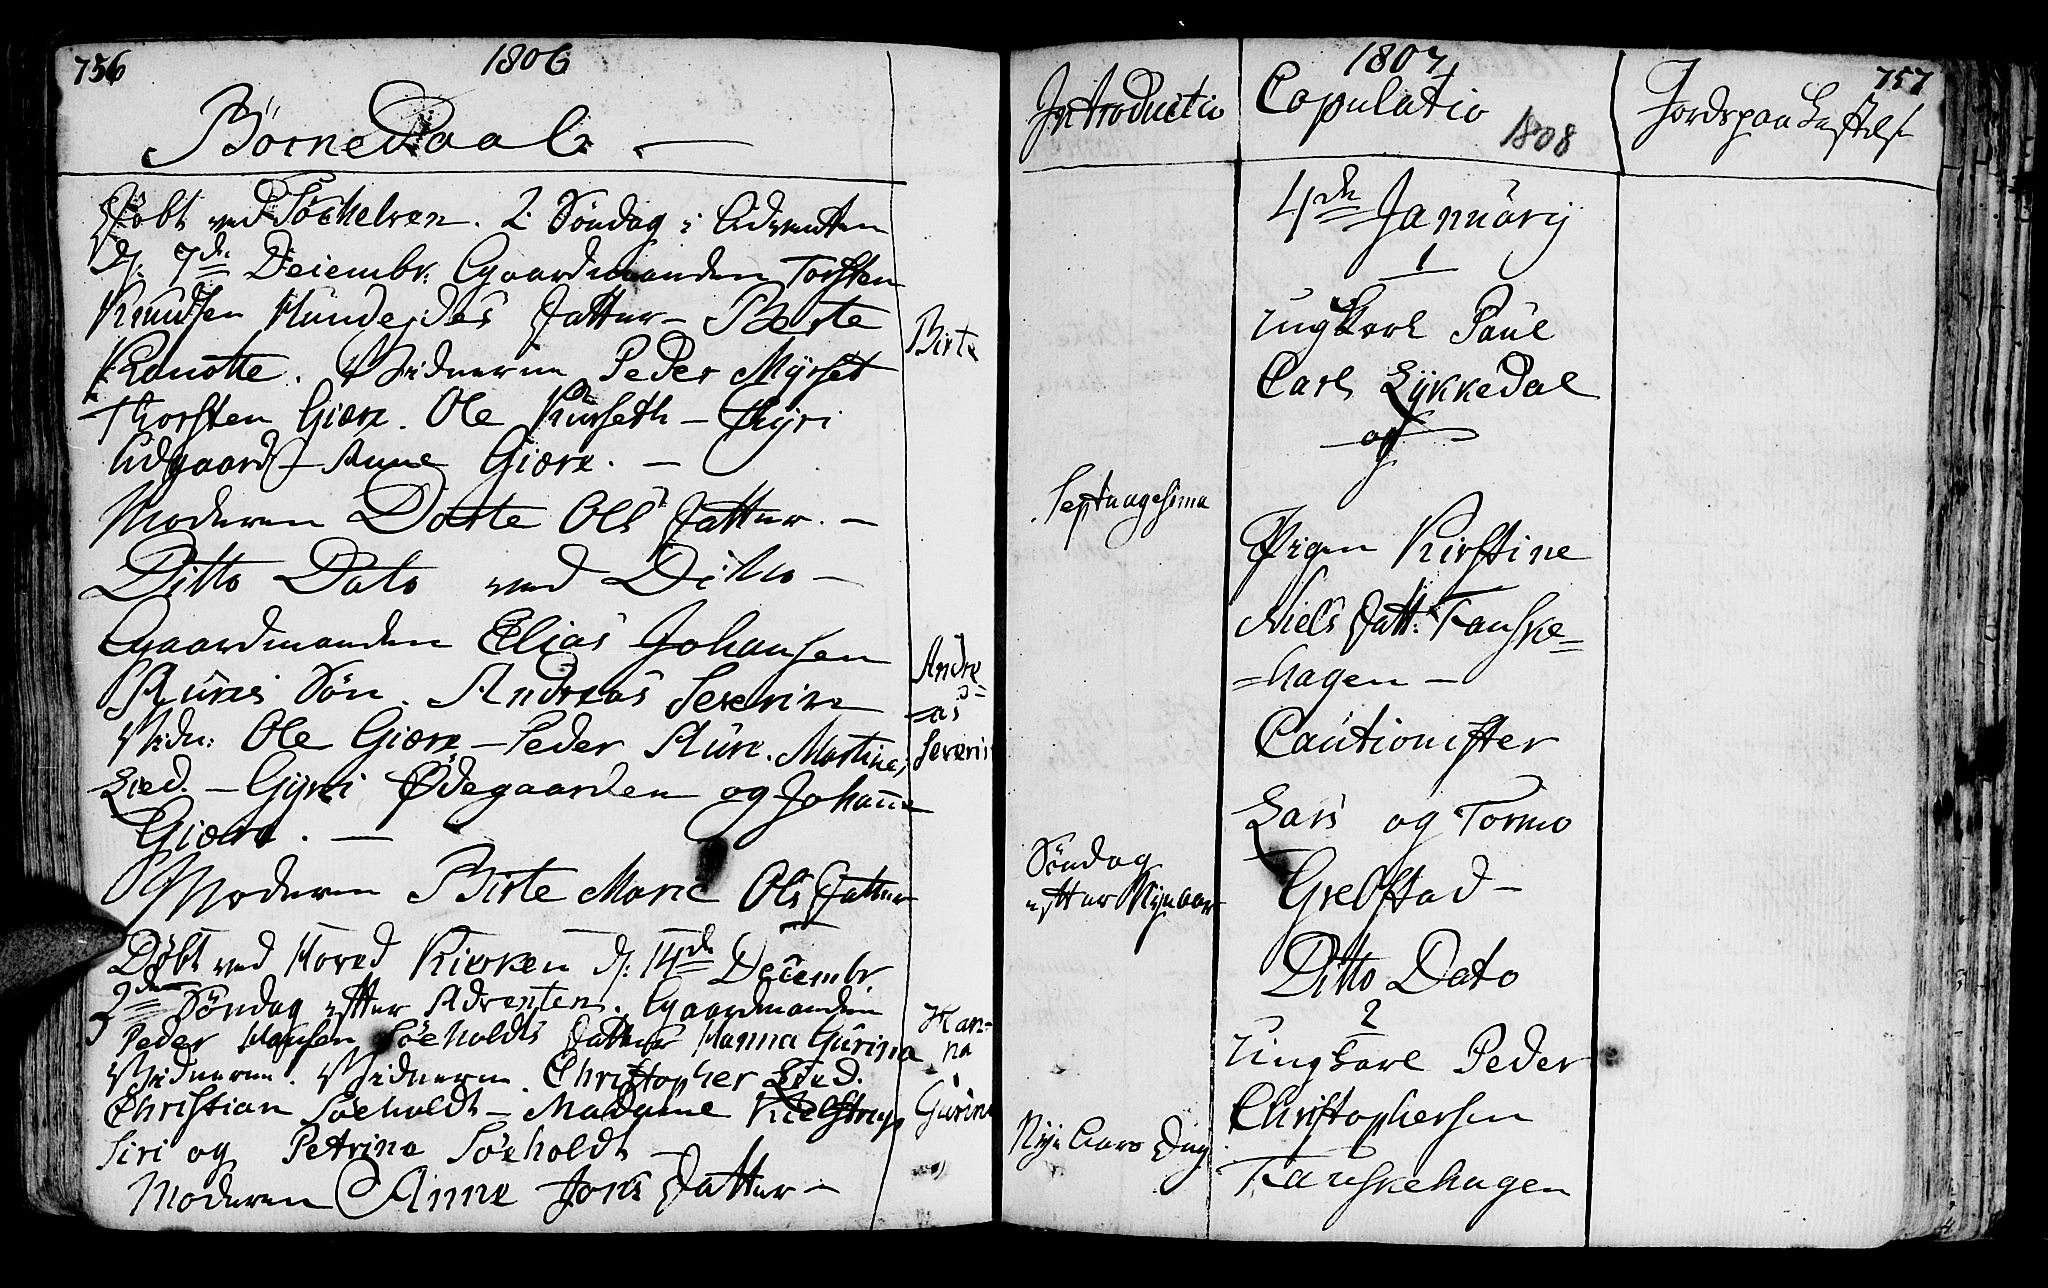 756
1806
BørneDaab. —
Døbt ved Søchelven. 2. Søndag i Adventen
d: 7de Deiembr: Gaardmanden Torsten
Knudsen Hundejdes Datter – Berte
Ranotte. Vidnerne Peder Myrset
Thorsten Giære. Ole Rürseth – Gyri
Udgaard – Anne Giære. —
Moderen Dorte Ols Datter. —
Ditto Dato ved Ditto —
Gaardmanden Elias Johansen
Aures Søn. Andreas Severin
Vidn: Ole Giære – Peder Aure. Martine
Lied. – Gyri Ødegaarden og Johanne
Giære. —
Moderen Birte Marie Ols Datter
Døbt ved Hoved Kirken d: 14de Decembr.
3die Søndag efter Adventen. Gaardmanden
Peder Hansen Søeholdts Datter Hanna Gürina
Vidnerne. Vidnerne. Christopher Lied.
Christian Søeholdt – Madame Kielstrup
Siri og Petrine Søeholdt —
Moderen Anne Jons Datter —
Birte
Andre
=as
Severin
Han=
na
Gürina
Introductio
Septuagesima
Søndag
efter Nyeaar
Nye Aars Dag
1807
Copulatio
1808
4de Januarij
1
Ungkarl Paul
Carl Lykkedal
og
Pigen Kirstine
Niels Datt: Fanske=
=hagen —
Cautionister
Lars og Tormo
Grelstad —
Ditto Dato
2
Ungkarl Peder
Christophersen
Fanskehagen
757
Jordspaa Kastelse